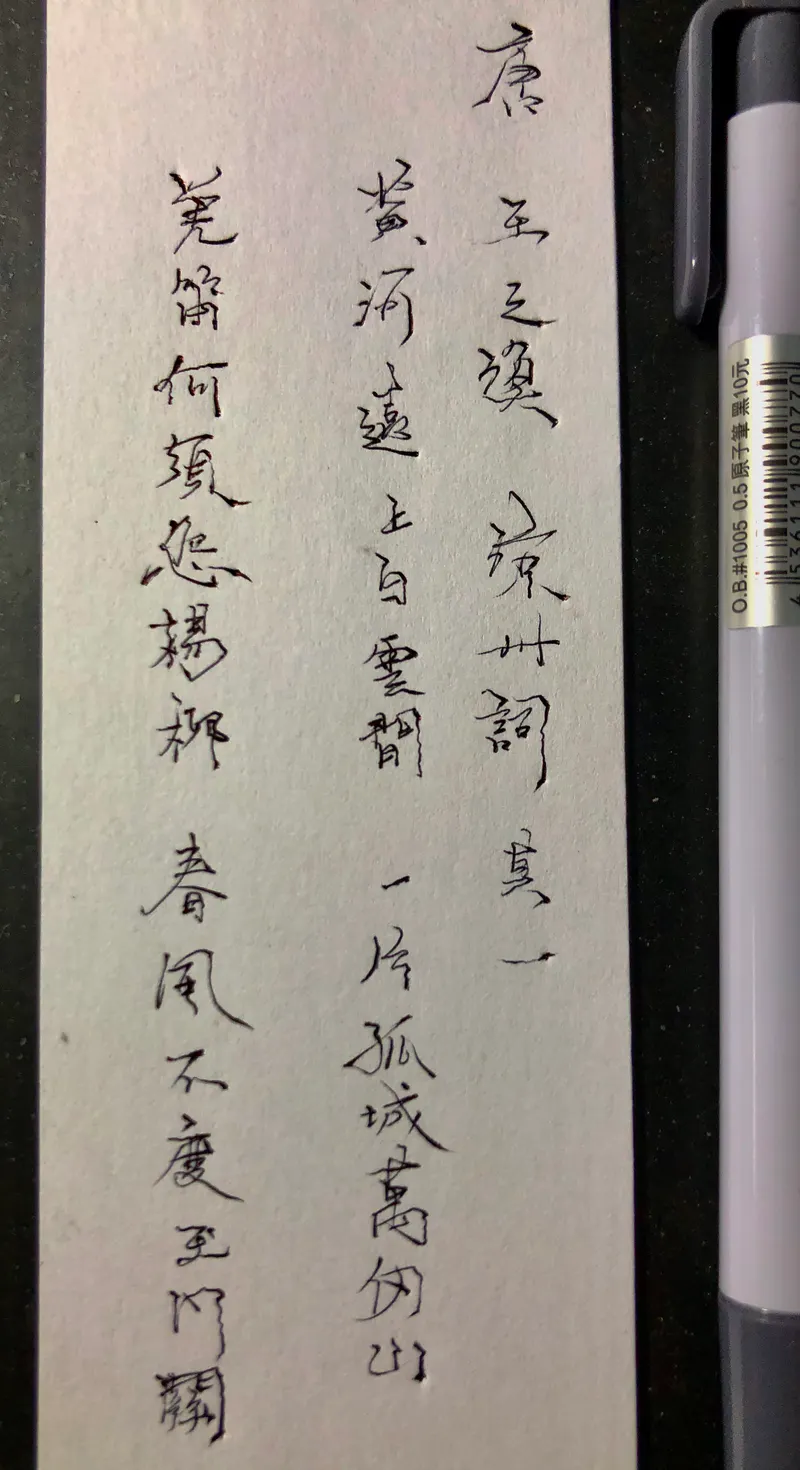 唐 王之渙 涼州詞 其一
黃河遠上白雲間 一片孤城萬仞山
羌笛何須怨楊柳 春風不度玉門關
O.B.#1005 0.5原子筆 黑10元
4 536111 900770